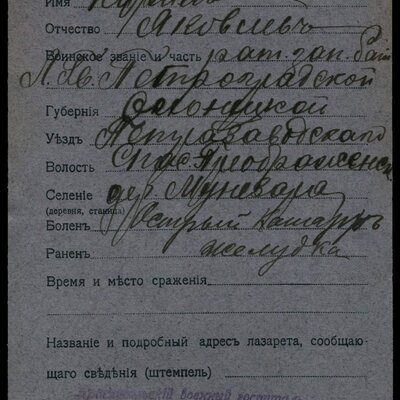 Имя
Отчество Яковлевъ
Воинское званіе и часть рат. зап. бат
Л. Гв. Петроградской
Губернія Олонецкой
Уѣздъ Петрозаводскаго
Волость Спас-Преображенск
Селеніе дер. Муневара
(деревня, станица)
Боленъ Острый катарръ
Раненъ желудка
Время и мѣсто сраженія
Названіе и подробный адресъ лазарета, сообщаю-
щаго свѣдѣнія (штемпель)
военный госпиталь